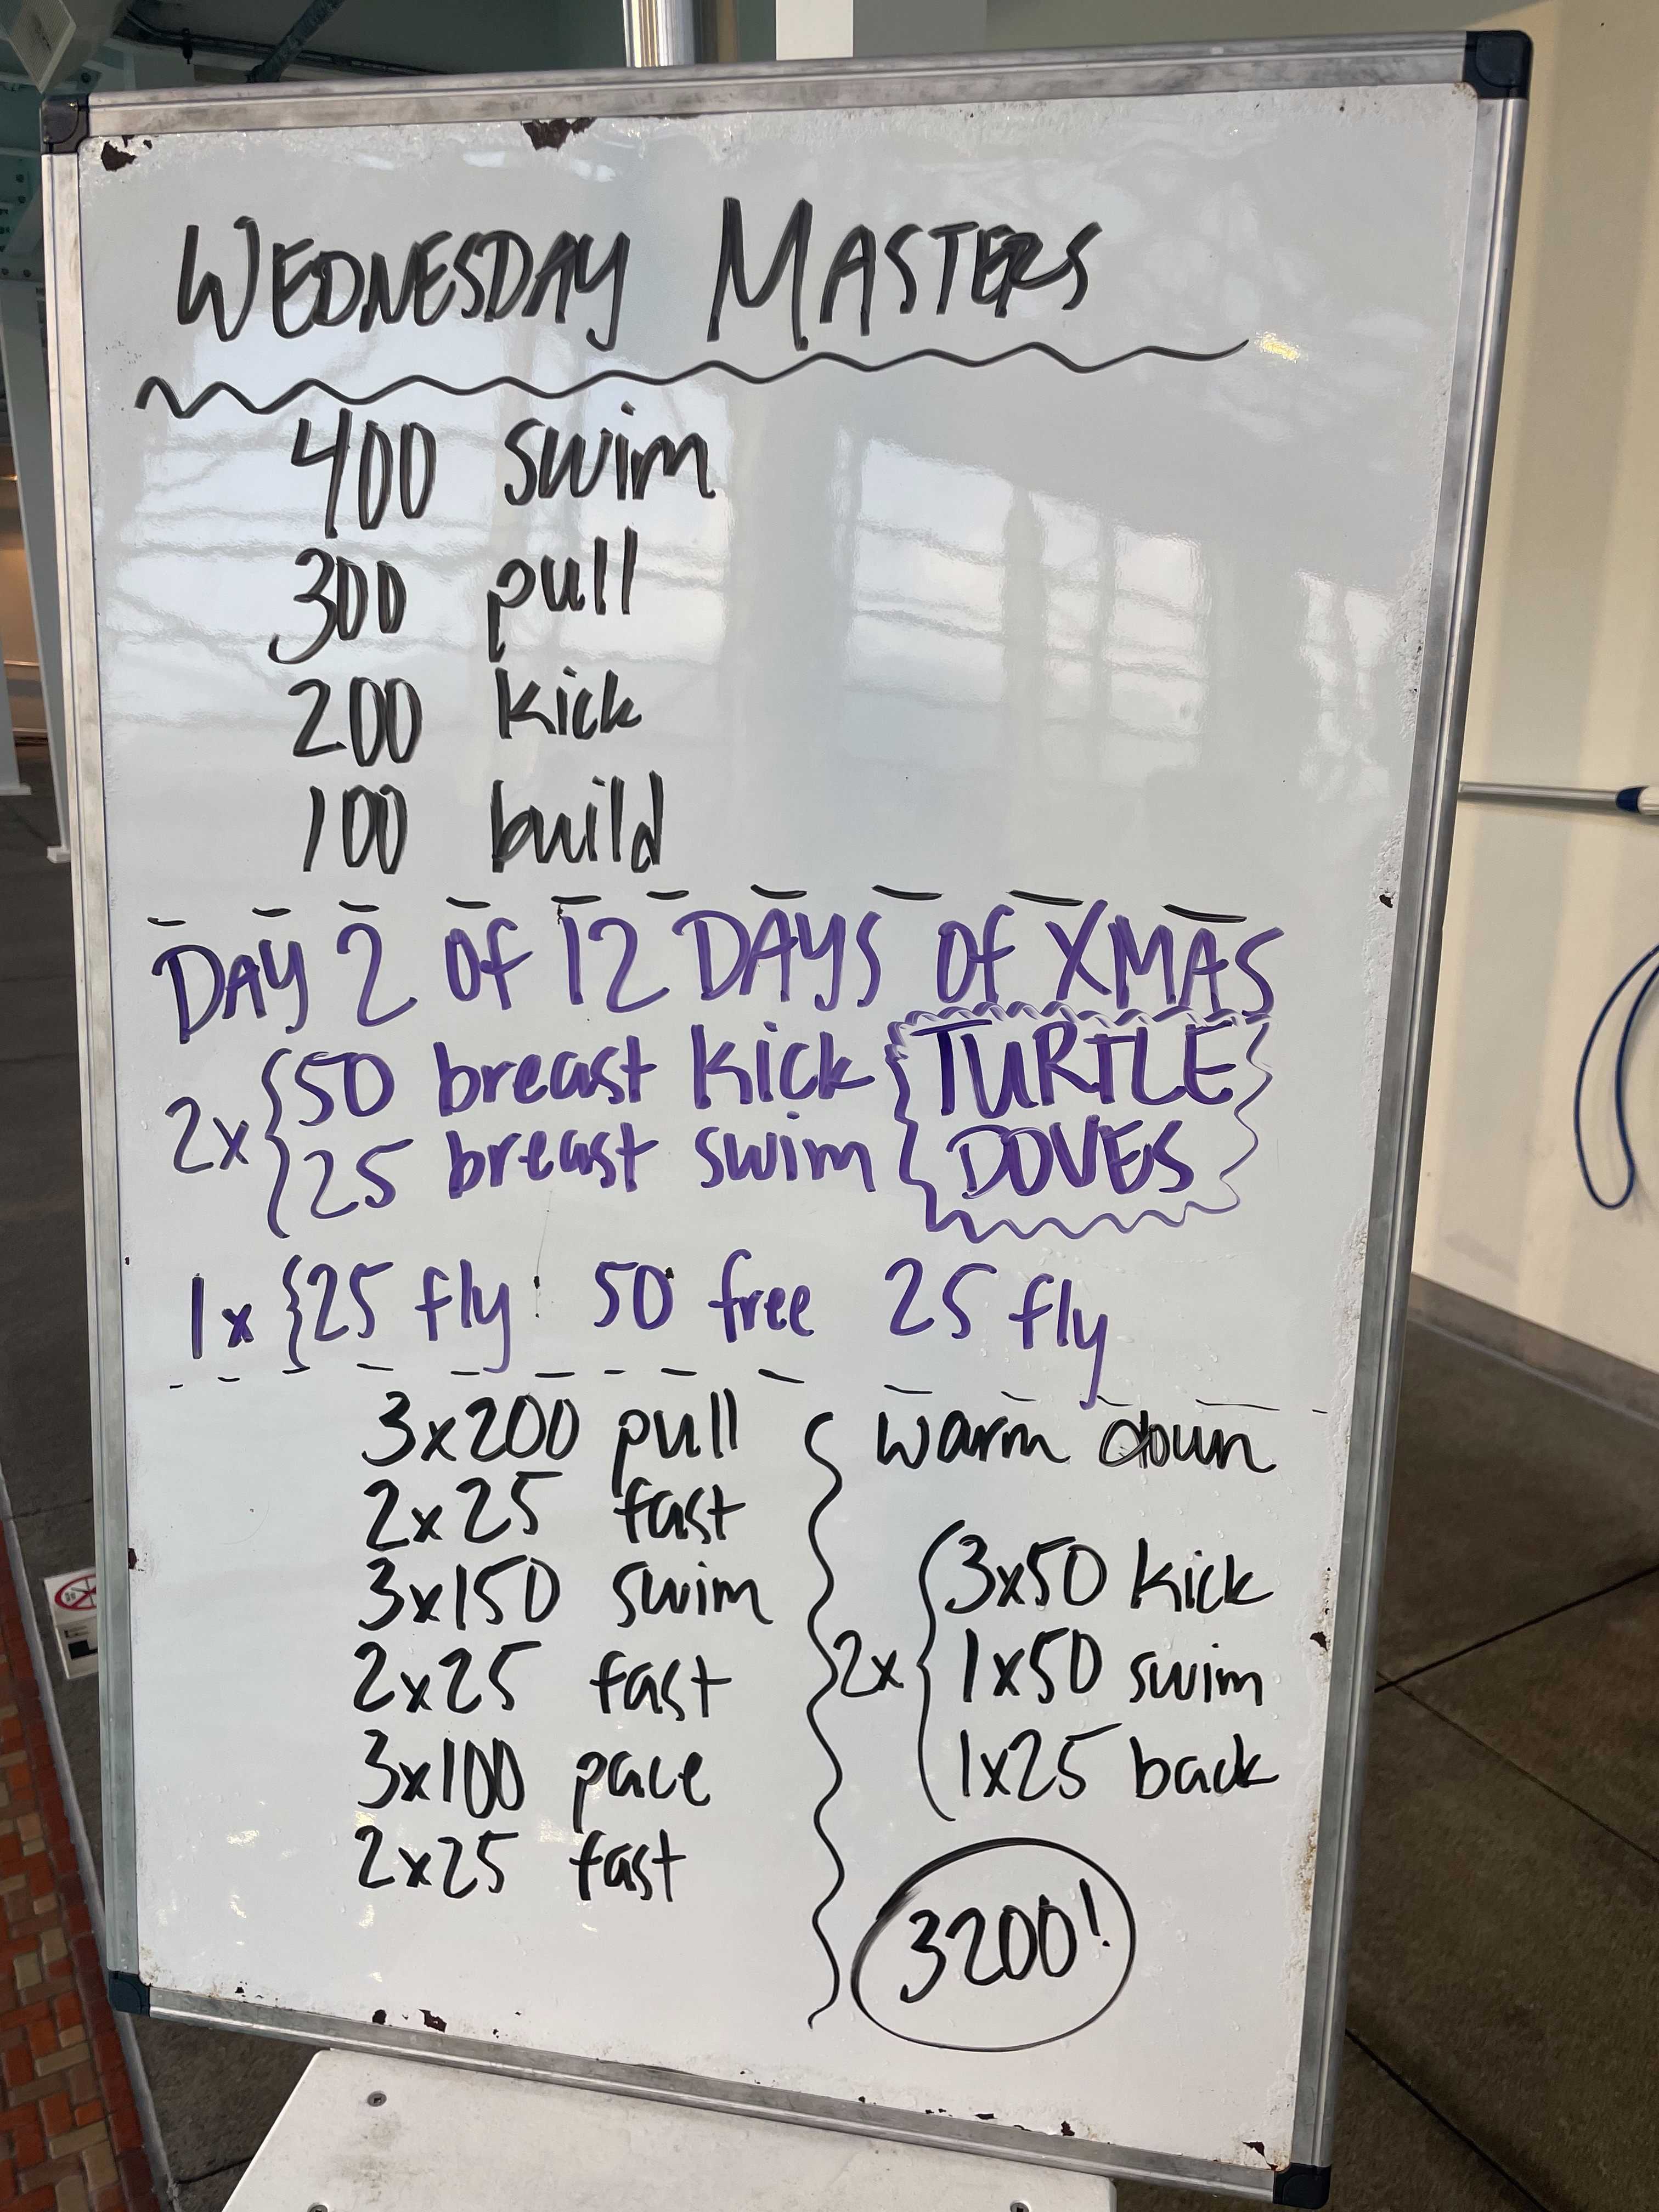 WEDNESDAY MASTERS
400 swim
300 pull
200 kick
100 build
DAY 2 of 12 DAYS of XMAS
2x { 50 breast kick
25 breast swim
TURTLE
DOVES
1x { 25 fly 50 free 25 fly
3x200 pull
2x25 fast
3x150 swim
2x25 fast
3x100 pace
2x25 fast
warm down
2x { 3x50 kick
1x50 swim
1x25 back
3200!